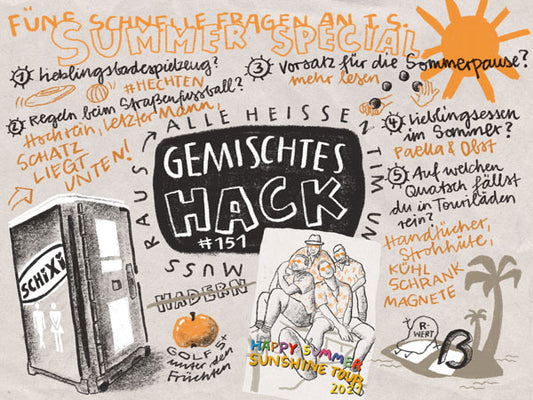 FÜNF SCHNELLE FRAGEN AN T.S.
SUMMER SPECIAL
1 Lieblingsbadespielzeug?
#HECHTEN
2 Regeln beim Straßenfussball?
Hoch rein, Letzter Mann,
SCHATZ
LIEGT
UNTEN!
3 Vorsatz für die Sommerpause?
mehr lesen
4 Lieblingsessen
im Sommer?
Paella & Obst
5 Auf welchen
Quatsch fällst
du in Tourläden
rein?
Handtücher,
Strohhüte,
KÜHL
SCHRANK
MAGNETE
ALLE HEISSEN TIM UN
MUSS RAUS
GEMISCHTES
HACK
#151
HADERN
SCHiXi
GOLF 5+
unter den
Früchten
HAPPY SUMMER
SUNSHINE TOUR
2021
R-
WERT
β